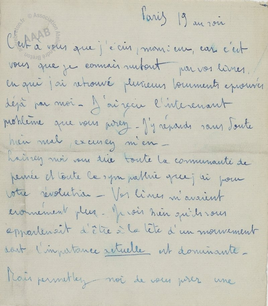 Paris 19 au soir
C'est à vous que j'écris, monsieur, car c'est
vous que je connais surtout par vos livres,
en qui j'ai retrouvé plusieurs tourments éprouvés
déjà par moi - J'ai reçu l'intéressant
problème que vous posez. J'y réponds sans doute
bien mal excusez m'en -
Laissez moi vous dire toute la communauté de
pensée et toute la sympathie que j'ai pour
votre révolution - Vos livres m'avaient
énormément plus. Je vois bien qu'ils vous
appartenait d'être à la tête d'un mouvement
dont l'importance actuelle est dominante.
Mais permettez moi de vous poser une